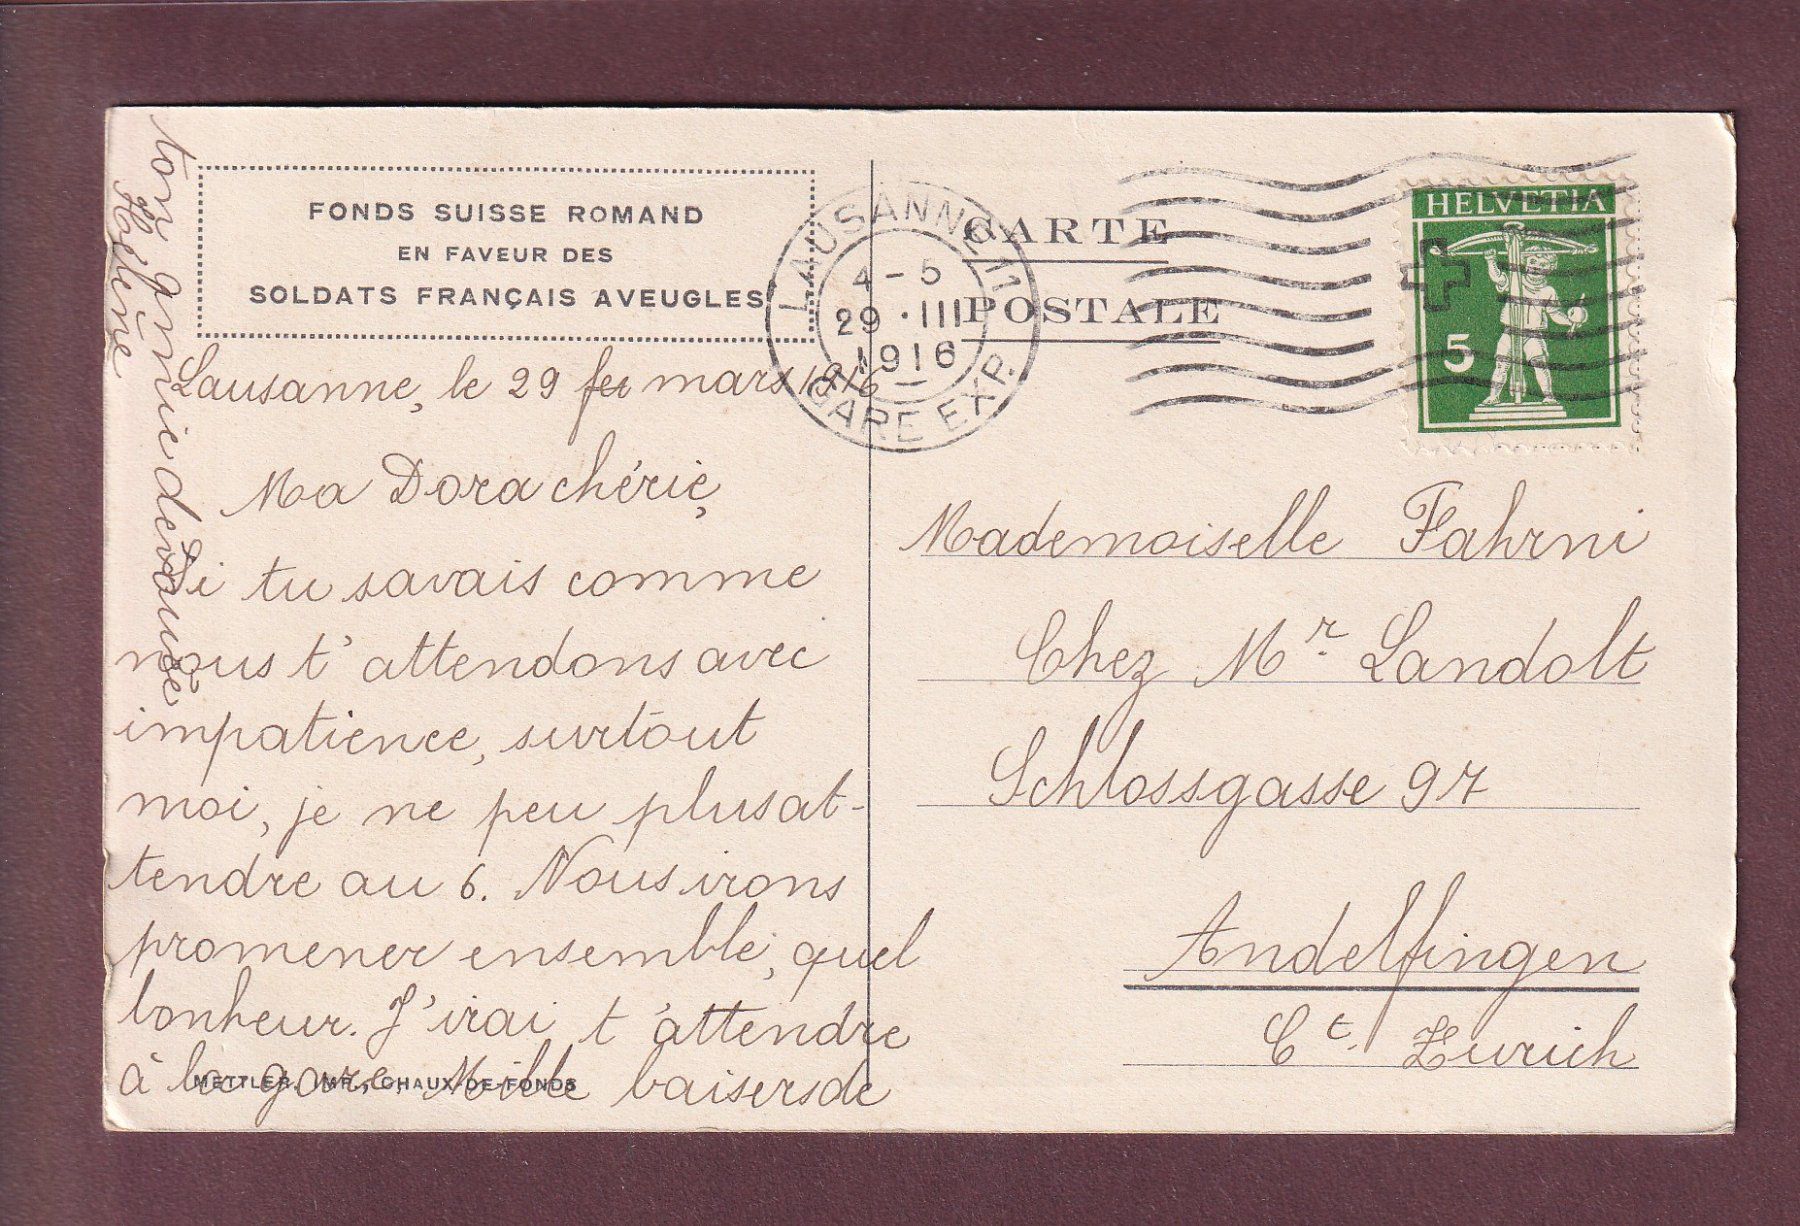 FONDS SUISSE ROMAND
EN FAVEUR DES
SOLDATS FRANÇAIS AVEUGLES
Lausanne, le 29 fev mars 1916
Ma Dora chérie,
Si tu savais comme
nous t'attendons avec
impatience, surtout
moi, je ne peu plus at-
tendre au 6. Nous irons
promener ensemble, quel
bonheur. J'irai t'attendre
à la gare. Mille baisers de
ton amie dévouée
Hélène
METTLER, IMP., CHAUX-DE-FONDS
LAUSANNE 11
4-5
29.III
1916
GARE EXP.
CARTE
POSTALE
HELVETIA
5
Mademoiselle Fahrni
Chez Mr. Landolt
Schlossgasse 97
Andelfingen
Ct. Zurich